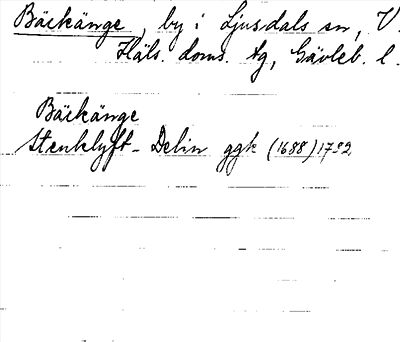 Bäckänge, by i Ljusdals sn, V.
Häls. doms. tg, Gävleb. l.
Bäckänge
Stenklyft - Delin ggk (1688) 1792